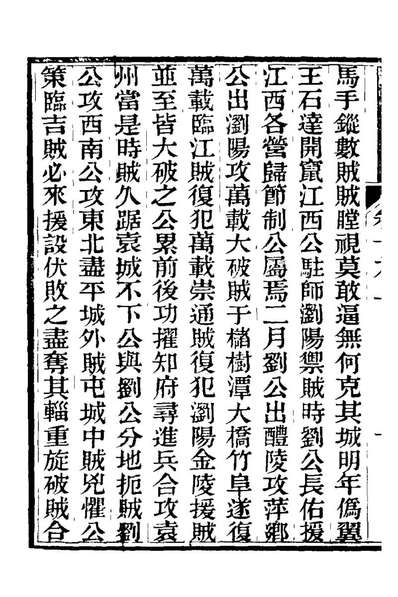 馬手鏦數賊賊瞠視莫敢逼無何克其城明年僞翼
王石達開竄江西公駐師瀏陽禦賊時劉公長佑援
江西各營歸節制公屬焉二月劉公出醴陵攻萍鄉
公出瀏陽攻萬載大破賊于櫧樹潭大橋竹阜遂復
萬載臨江賊復犯萬載崇通賊復犯瀏陽金陵援賊
並至皆大破之公累前後功擢知府尋進兵合攻袁
州當是時賊久踞袁城不下公與劉公分地扼賊劉
公攻西南公攻東北盡平城外賊屯城中賊兇懼公
策臨吉賊必來援設伏敗之盡奪其輜重旋破賊合